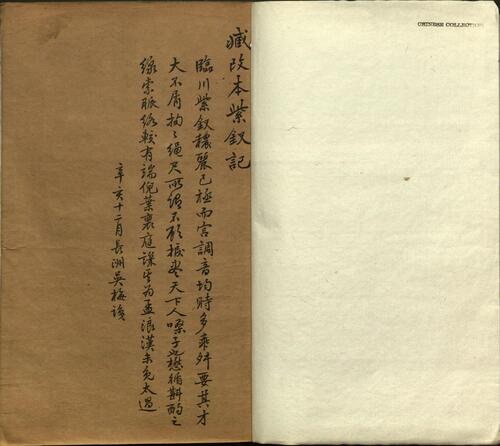 臧改本紫釵記
臨川紫釵穠麗已極而宮調音均時多乖舛要其才
大不屑拘拘繩尺所謂不顧拗盡天下人嗓子也懋循斟酌之
線索脈絡較有端倪葉懷庭譏其為孟浪漢未免太過
辛亥十二月長洲吳梅識
CHINESE COLLECTION